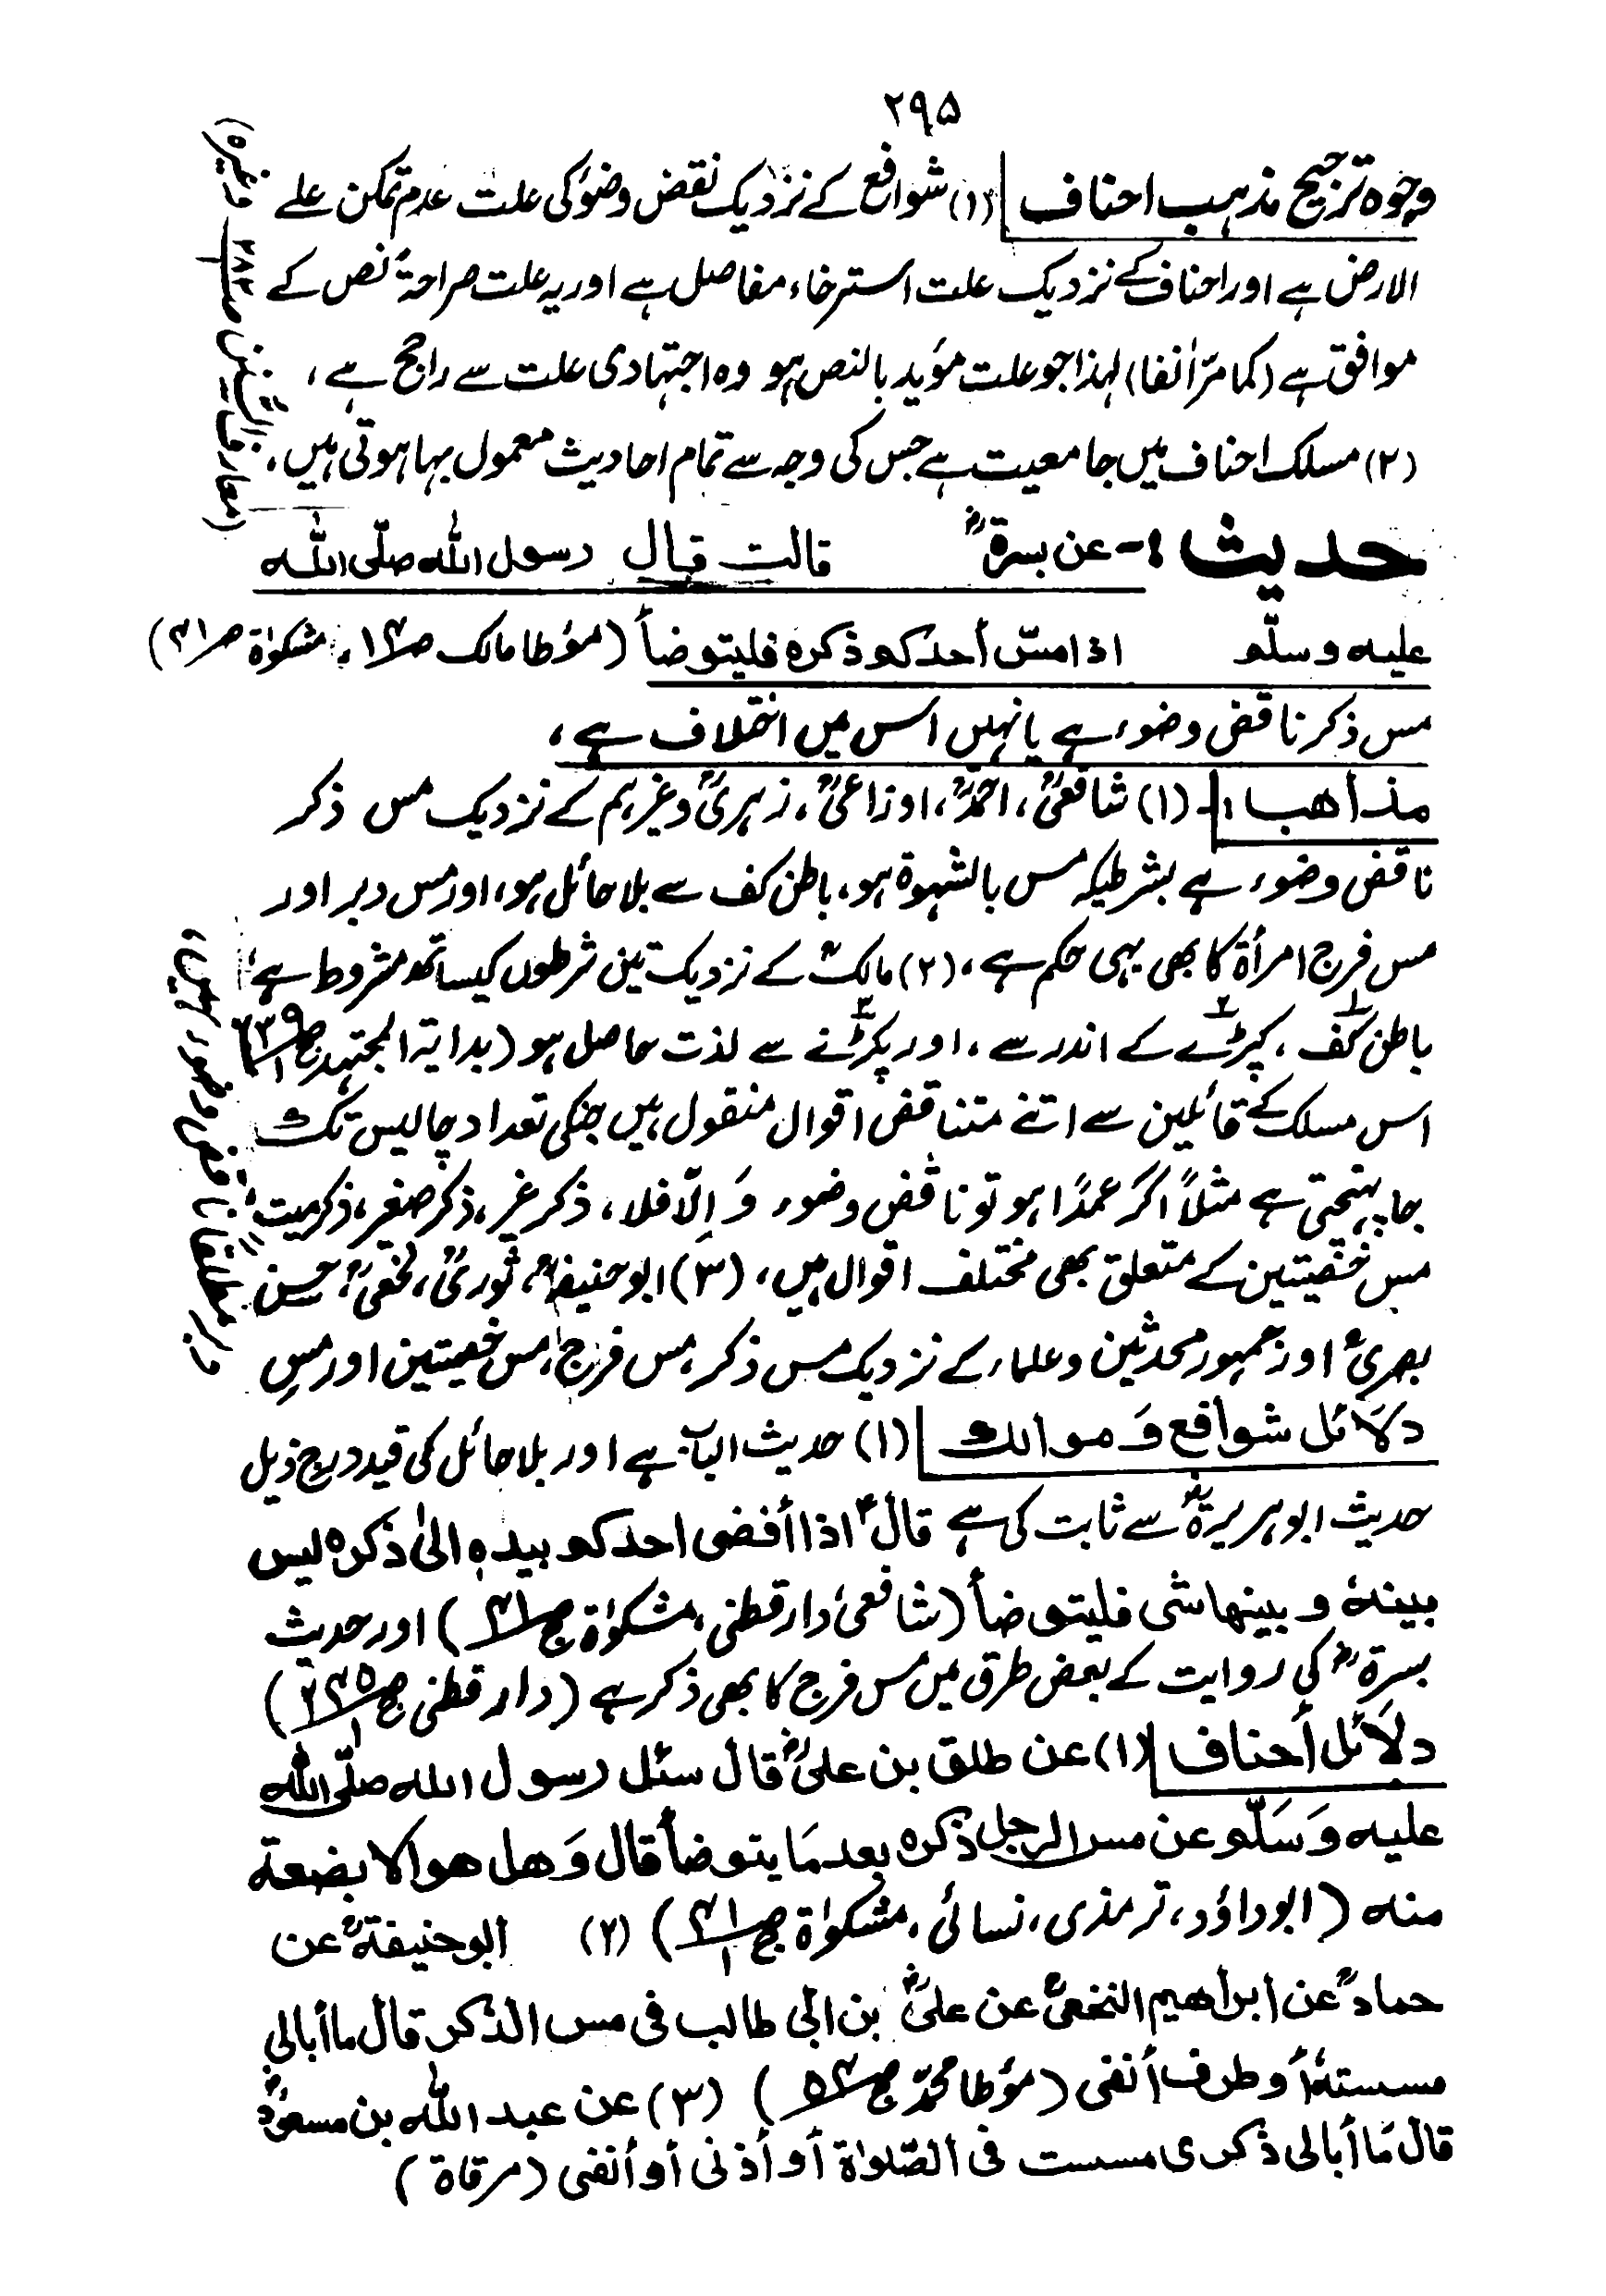 ۲۹۵
وجوہ ترجیح مذہب احناف (۱) شوافع کے نزدیک نقض وضوٗ کی علت عدم تمکن علے
الارض ہے اور احناف کے نزدیک علت استرخاء مفاصل ہے اور یہ علت صراحۃً نص کے
موافق ہے (کما مرّ اٰنفا) لہذا جو علت مؤید بالنص ہو وہ اجتہادی علت سے راجح ہے ،
(۲) مسلک احناف میں جامعیت ہے جس کی وجہ سے تمام احادیث معمول بہا ہوتی ہیں ،
(معارف السنن ص۲۸۲ وغیرہ)
حدیث :- عن بسرۃؓ قالت قال رسول اللہ صلّی اللہ
علیہ وسلّم اذا مسّ أحدکم ذکرہ فلیتوضأ (مؤطا مالک ص۱۴ ، مشکوٰۃ ص۴۱)
مس ذکر ناقض وضوء ہے یا نہیں اس میں اختلاف ہے ،
مذاهب :- (۱) شافعیؒ ، احمدؒ ، اوزاعیؒ ، زہریؒ وغیرہم کے نزدیک مس ذکر
ناقض وضوء ہے بشرطیکہ مس بالشہوۃ ہو ، باطن کف سے بلا حائل ہو ، اور مس دبر اور
مس فرج امرأۃ کا بھی یہی حکم ہے ، (۲) مالکؒ کے نزدیک تین شرطوں کیساتھ مشروط ہے
باطن کف ، کپڑے کے اندر سے ، اور پکڑنے سے لذت حاصل ہو (بدایۃ المجتہد ج۱ ص۳۹
اس مسلک کے قائلین سے اتنے متناقض اقوال منقول ہیں جنکی تعداد چالیس تک
جا پہنچتی ہے مثلاً اگر عمدًا ہو تو ناقض وضوء وَ اِلّا فلا ، ذکر غیر ، ذکر صغیر ، ذکر میت ،
مس خصیتین کے متعلق بھی مختلف اقوال ہیں ، (۳) ابو حنیفہؒ ، ثوریؒ ، نخعیؒ ، حسن
بصریؒ اور جمہور محدثین وعلماء کے نزدیک مس ذکر ، مس فرج ، مس خصیتین اور مسِ
دبر مطلقاً ناقض وضوء نہیں ،
دلائل شوافع وَ موالک (۱) حدیث الباب ہے اور بلا حائل کی قید درج ذیل
حدیث ابو ہریرۃؓ سے ثابت کی ہے قالؑ اذا أفضی احدکم بیدہٖ الیٰ ذکرہ لیس
بینہٗ و بینها شی فلیتوضأ (شافعی ، دارقطنی ، مشکوٰۃ ج۱ ص۴۱) اور حدیث
بسرۃؓ کی روایت کے بعض طرق میں مس فرج کا بھی ذکر ہے (دارقطنی ج۱)
دلائل أحناف (۱) عن طلق بن علیؓ قال سئل رسول اللہ صلّی اللہ
علیہ وَسَلّم عن مس الرجل ذکرہ بعد مَا یتوضأ قال وَهل هو الا بضعۃ
منہ (ابوداؤد ، ترمذی ، نسائی ، مشکوٰۃ ج۱ ص۴۱) (۲) ابو حنیفۃؒ عن
حمادؒ عن ابراهیم النخعیؒ عن علیؓ بن ابی طالب فی مس الذکر قال ما أبالی
مسستہٗ أو طرف أنفی (مؤطا محمدؒ) (۳) عن عبد اللہ بن مسعودؓ
قال مَا أبالی ذکری مسست فی الصّلوٰۃ أو أذنی أو أنفی (مرقاۃ)